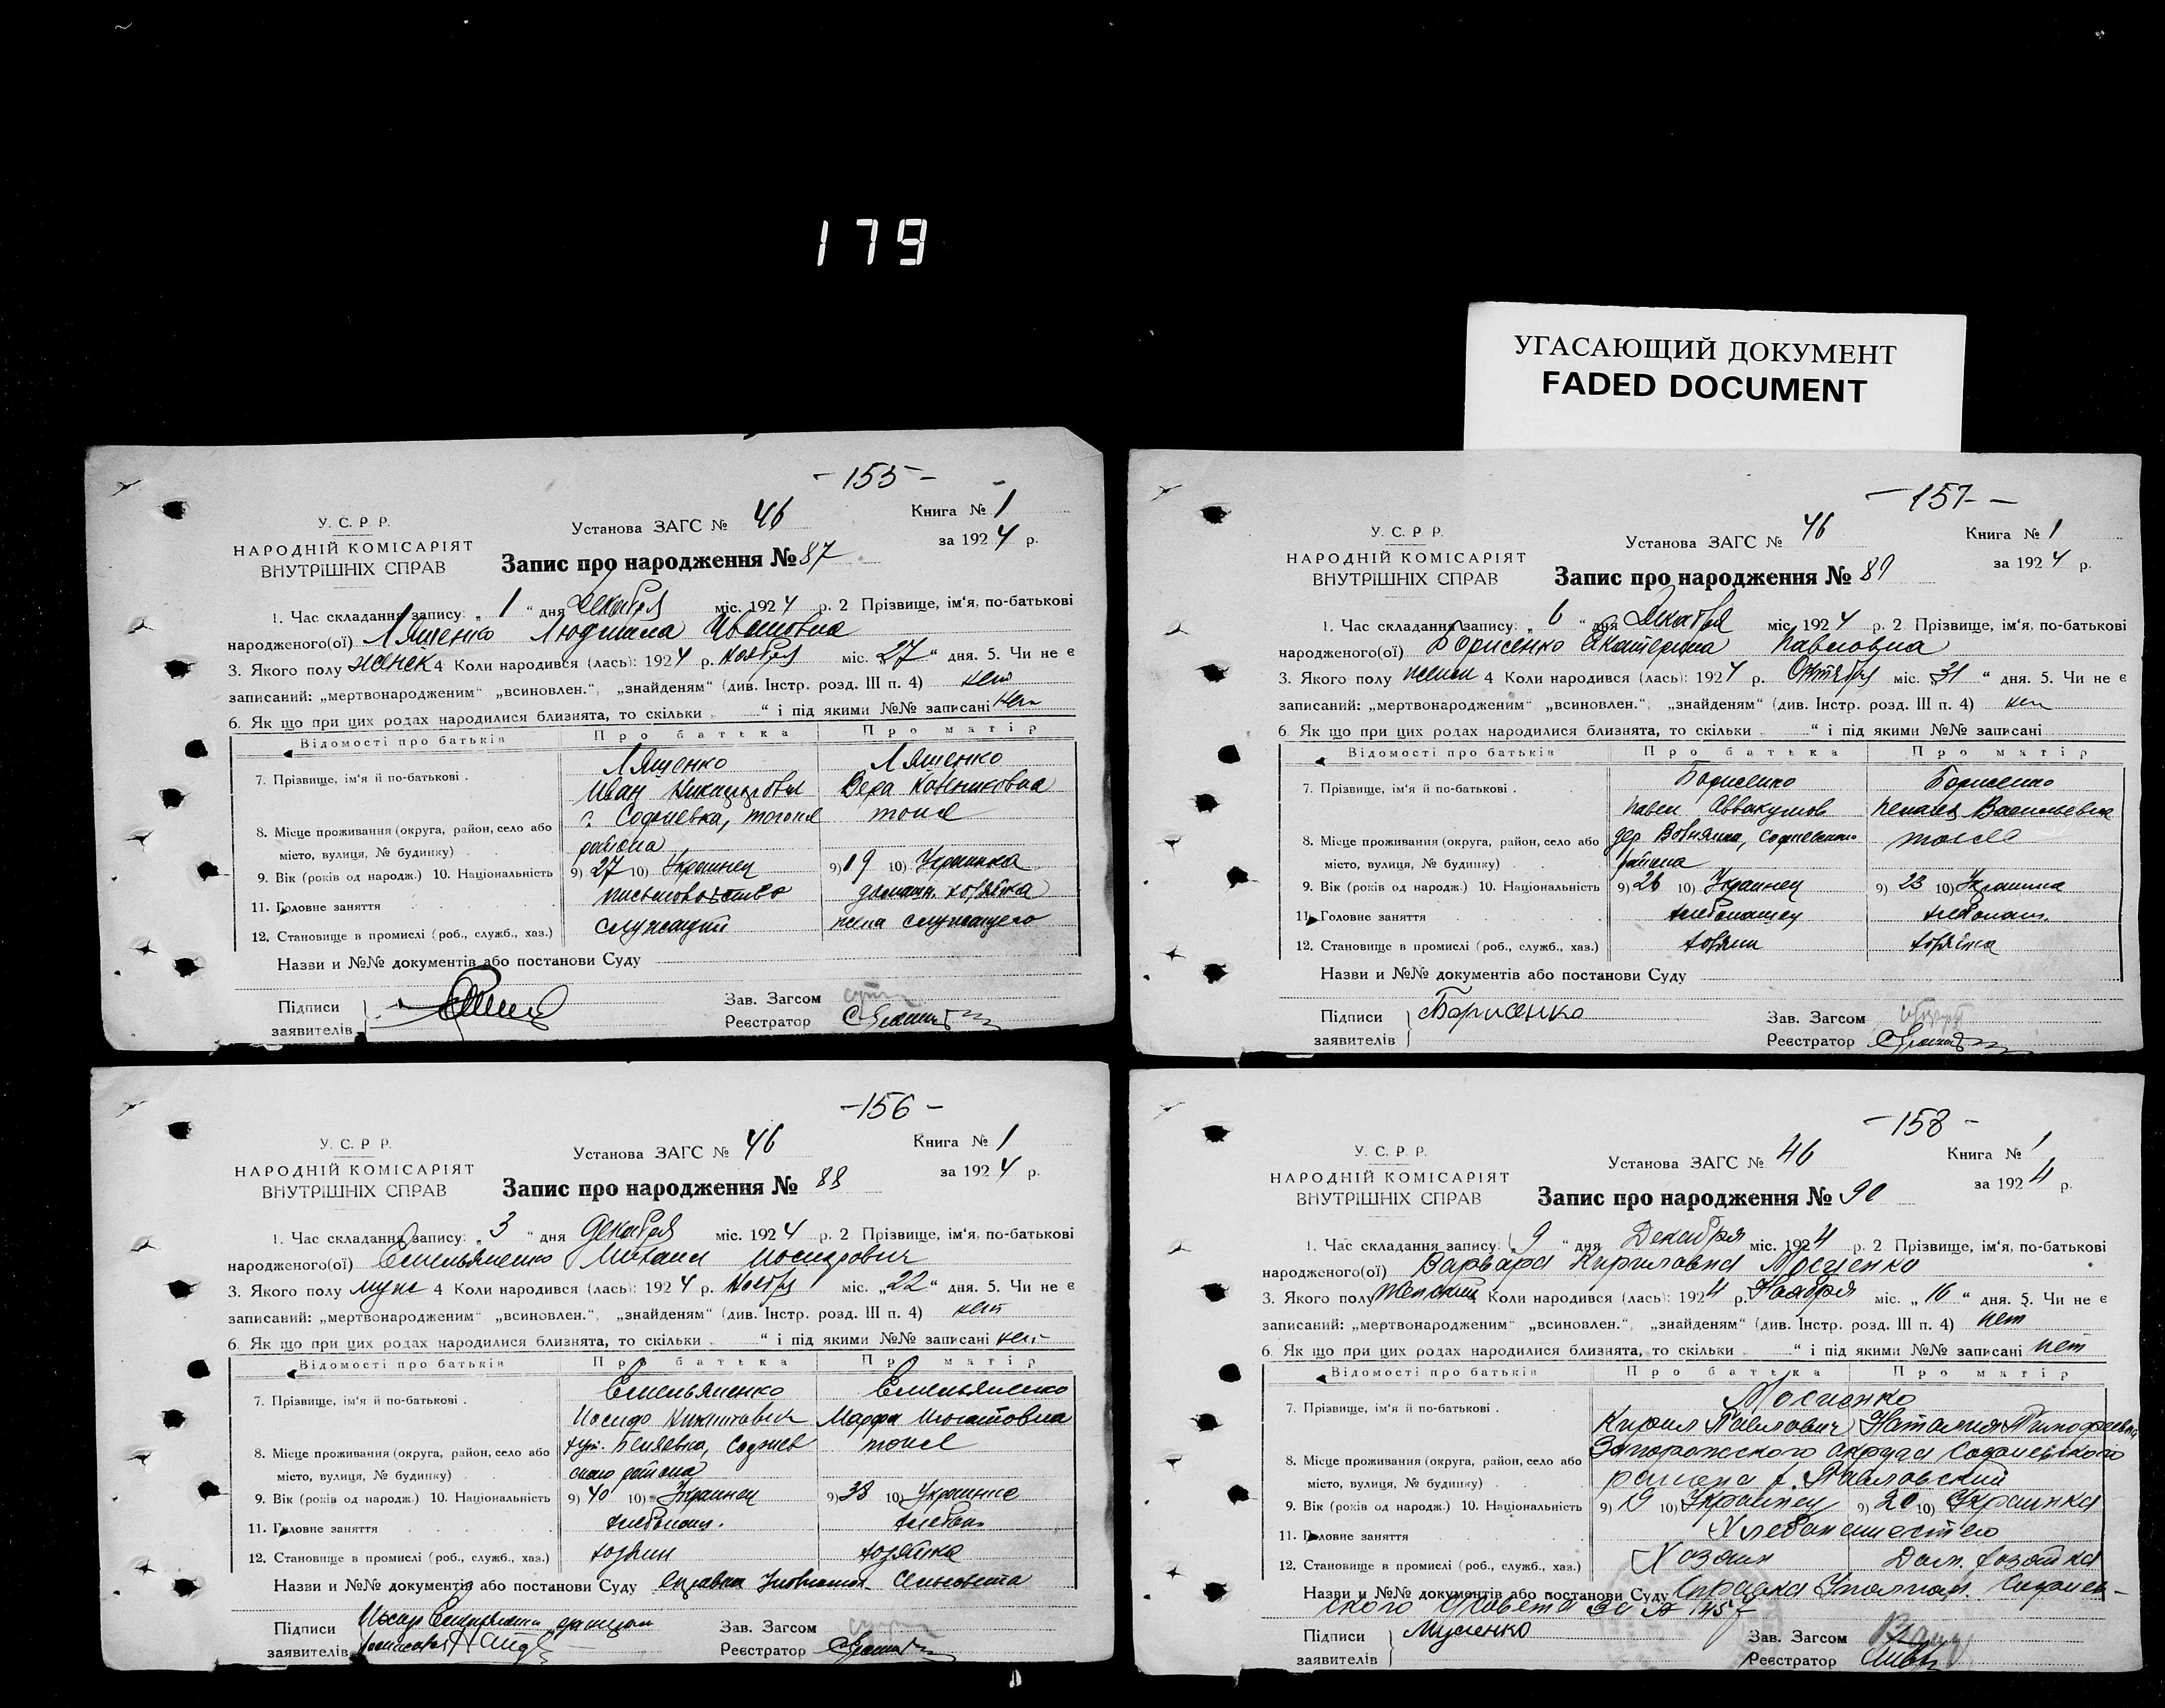 179
УГАСАЮЩИЙ ДОКУМЕНТ
FADED DOCUMENT
- 155 -
У. С. Р. Р.
НАРОДНІЙ КОМІСАРІЯТ
ВНУТРІШНІХ СПРАВ
Установа ЗАГС № 46
Книга № 1
за 1924 р.
Запис про народження № 87
1. Час складання запису: „ 1 “ дня Декабря міс. 1924 р. 2 Прізвище, ім‘я, по-батькові
народженого(ої) Лященко Людмила Ивановна
3. Якого полу женск 4 Коли народився (лась): 1924 р. Ноября міс. „27“ дня. 5. Чи не є
записаний: „мертвонародженим“ „всиновлен.“, „знайденям“ (див. Інстр. розд. III п. 4) нет
6. Як що при цих родах народилися близнята, то скільки „ “ і під якими №№ записані нет
Відомості про батьків Про батька Про матір
7. Прізвище, ім‘я й по-батькові . Лященко Лященко
Иван Вера
8. Місце проживання (округа, район, село або с. Софиевка, того же тоже
місто, вулиця, № будинку) района
9. Вік (років од народж.) 10. Національність 9) 27 10) Украинец 9) 19 10) Украинка
11. Головне заняття письмоводство домашн. хозяйка
12. Становище в промислі (роб., служб., хаз.) служащий жена служащего
Назви и №№ документів або постанови Суду
Підписи
заявителів
Зав. Загсом
Реєстратор
- 156 -
У. С. Р. Р.
НАРОДНІЙ КОМІСАРІЯТ
ВНУТРІШНІХ СПРАВ
Установа ЗАГС № 46
Книга № 1
за 1924 р.
Запис про народження № 88
1. Час складання запису: „ 3 “ дня Декабря міс. 1924 р. 2 Прізвище, ім‘я, по-батькові
народженого(ої) Емельяненко Михаил Иосифович
3. Якого полу муж 4 Коли народився (лась): 1924 р. Ноября міс. „22“ дня. 5. Чи не є
записаний: „мертвонародженим“ „всиновлен.“, „знайденям“ (див. Інстр. розд. III п. 4) нет
6. Як що при цих родах народилися близнята, то скільки „ “ і під якими №№ записані нет
Відомості про батьків Про батька Про матір
7. Прізвище, ім‘я й по-батькові . Емельяненко Емельяненко
Иосиф Никитович Марфа Игнатовна
8. Місце проживання (округа, район, село або хут. Беляевка, Софиев тоже
місто, вулиця, № будинку) ского района
9. Вік (років од народж.) 10. Національність 9) 40 10) Украинец 9) 38 10)
11. Головне заняття хлебопаш. хлебоп.
12. Становище в промислі (роб., служб., хаз.) хозяин хозяйка
Назви и №№ документів або постанови Суду Справка Сельсовета
Підписи Иосиф
заявителів
Зав. Загсом
Реєстратор
- 157 -
У. С. Р. Р.
НАРОДНІЙ КОМІСАРІЯТ
ВНУТРІШНІХ СПРАВ
Установа ЗАГС № 46
Книга № 1
за 1924 р.
Запис про народження № 89
1. Час складання запису: „ 6 “ дня Декабря міс. 1924 р. 2 Прізвище, ім‘я, по-батькові
народженого(ої) Борисенко Екатерина Павловна
3. Якого полу женск 4 Коли народився (лась): 1924 р. Октября міс. „31“ дня. 5. Чи не є
записаний: „мертвонародженим“ „всиновлен.“, „знайденям“ (див. Інстр. розд. III п. 4) нет
6. Як що при цих родах народилися близнята, то скільки „ “ і під якими №№ записані
Відомості про батьків Про батька Про матір
7. Прізвище, ім‘я й по-батькові . Борисенко Борисенко
Павел Аввакумов Пелагея Васильевна
8. Місце проживання (округа, район, село або дер. Софиевского тоже
місто, вулиця, № будинку) района
9. Вік (років од народж.) 10. Національність 9) 26 10) Украинец 9) 23 10) Украинка
11. Головне заняття хлебопашец хлебопаш.
12. Становище в промислі (роб., служб., хаз.) хозяин хозяйка
Назви и №№ документів або постанови Суду
Підписи Борисенко
заявителів
Зав. Загсом
Реєстратор
- 158 -
У. С. Р. Р.
НАРОДНІЙ КОМІСАРІЯТ
ВНУТРІШНІХ СПРАВ
Установа ЗАГС № 46
Книга № 1
за 1924 р.
Запис про народження № 90
1. Час складання запису: „ 9 “ дня Декабря міс. 1924 р. 2 Прізвище, ім‘я, по-батькові
народженого(ої) Варвара Кириловна Мосиенко
3. Якого полу Женский 4 Коли народився (лась): 1924 р. Ноября міс. „ 16 “ дня. 5. Чи не є
записаний: „мертвонародженим“ „всиновлен.“, „знайденям“ (див. Інстр. розд. III п. 4) нет
6. Як що при цих родах народилися близнята, то скільки „ “ і під якими №№ записані нет
Відомості про батьків Про батька Про матір
7. Прізвище, ім‘я й по-батькові . Мосиенко
Кирил Павлович Наталия Тимофеевна
8. Місце проживання (округа, район, село або Запорожского округа Софиевского
місто, вулиця, № будинку) района х. Павловский
9. Вік (років од народж.) 10. Національність 9) 19 10) Украинец 9) 20 10) Украинка
11. Головне заняття Хлебопашество
12. Становище в промислі (роб., служб., хаз.) Хозяин Дом. хозяйка
Назви и №№ документів або постанови Суду Справка Софиев-
ского Совета за № 1457
Підписи Мусиенко
заявителів
Зав. Загсом
Реєстратор